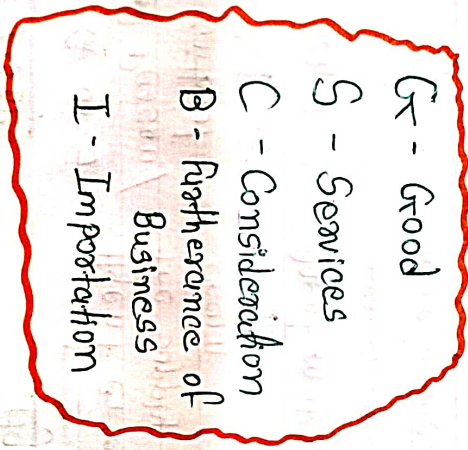 G - Good
S - Services
C - Consideration
B - Furtherance of
Business
I - Importation